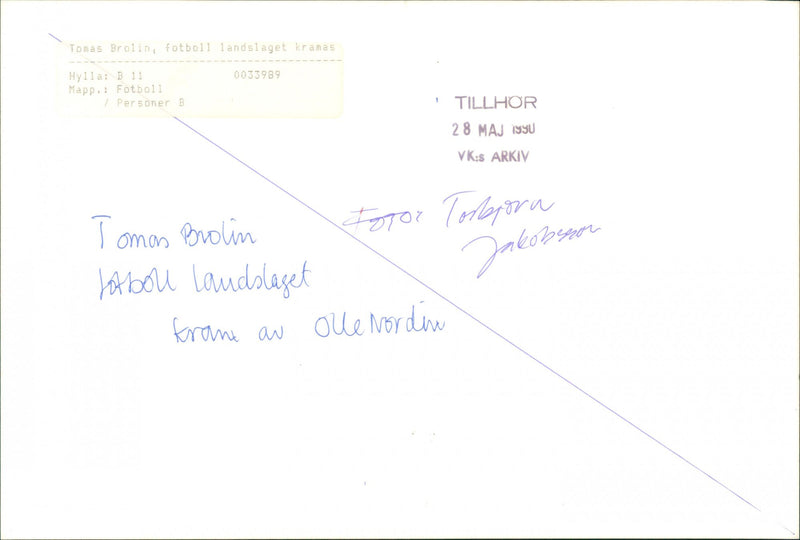 Tomas Brolin, fotboll landslaget kramas
Hylla: B 11 0033989
Mapp.: Fotboll
/ Personer B
TILLHÖR
28 MAJ 1990
VK:s ARKIV
Foto: Torbjörn
Jakobsson
Tomas Brolin
fotboll landslaget
kram av Olle Nordin